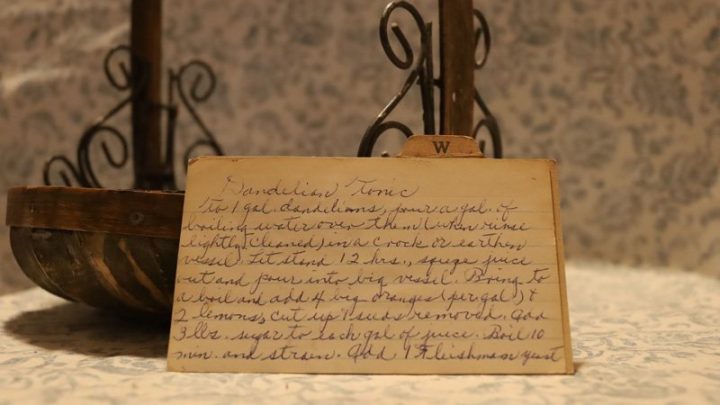 W
Dandelian Tonic
To 1 gal. dandelions, pour a gal. of
boiling water over them (when rinse
lightly cleaned) in a crock or earthen
vessel. Let stand 12 hrs., squge juice
out and pour into big vessel. Bring to
a boil and add 4 big oranges (per gal.) &
2 lemons, cut up & seeds removed. Add
3 lbs. sugar to each gal of juice. Boil 10
min. and strain. Add 1 Fleishman yeast